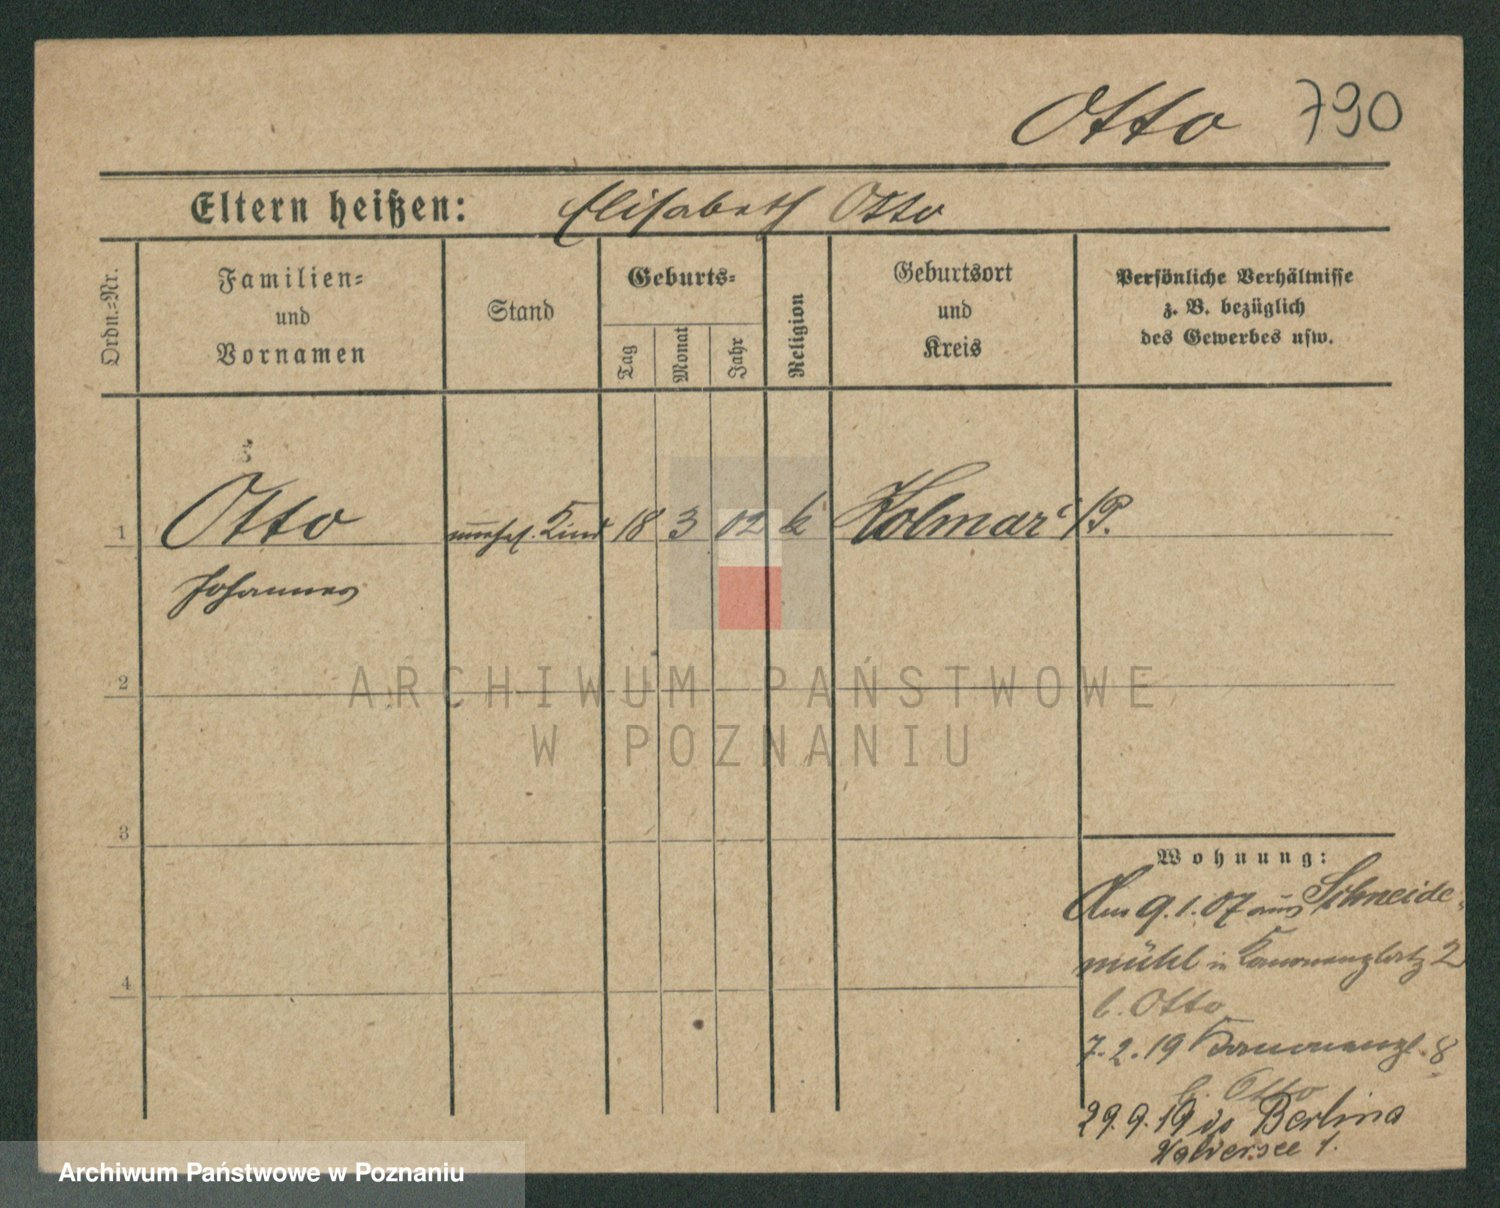 Otto 790
Eltern heißen: Elisabeth Otto
Ordn.-Nr.
Familien-
und
Vornamen
Stand
Geburts-
Tag
Monat
Jahr
Religion
Geburtsort
und
Kreis
Persönliche Verhältnisse
z. B. bezüglich
des Gewerbes usw.
1 Otto unehel. Kind 18 3 02 k Kolmar i/P.
Johannes
2
ARCHIWUM PAŃSTWOWE
W POZNANIU
3
4
Wohnung:
Am 9.1.07 aus Schneide-
mühl in 2
b. Otto
7.2.19 8
b. Otto
29.9.19 Berlina
1.
Archiwum Państwowe w Poznaniu